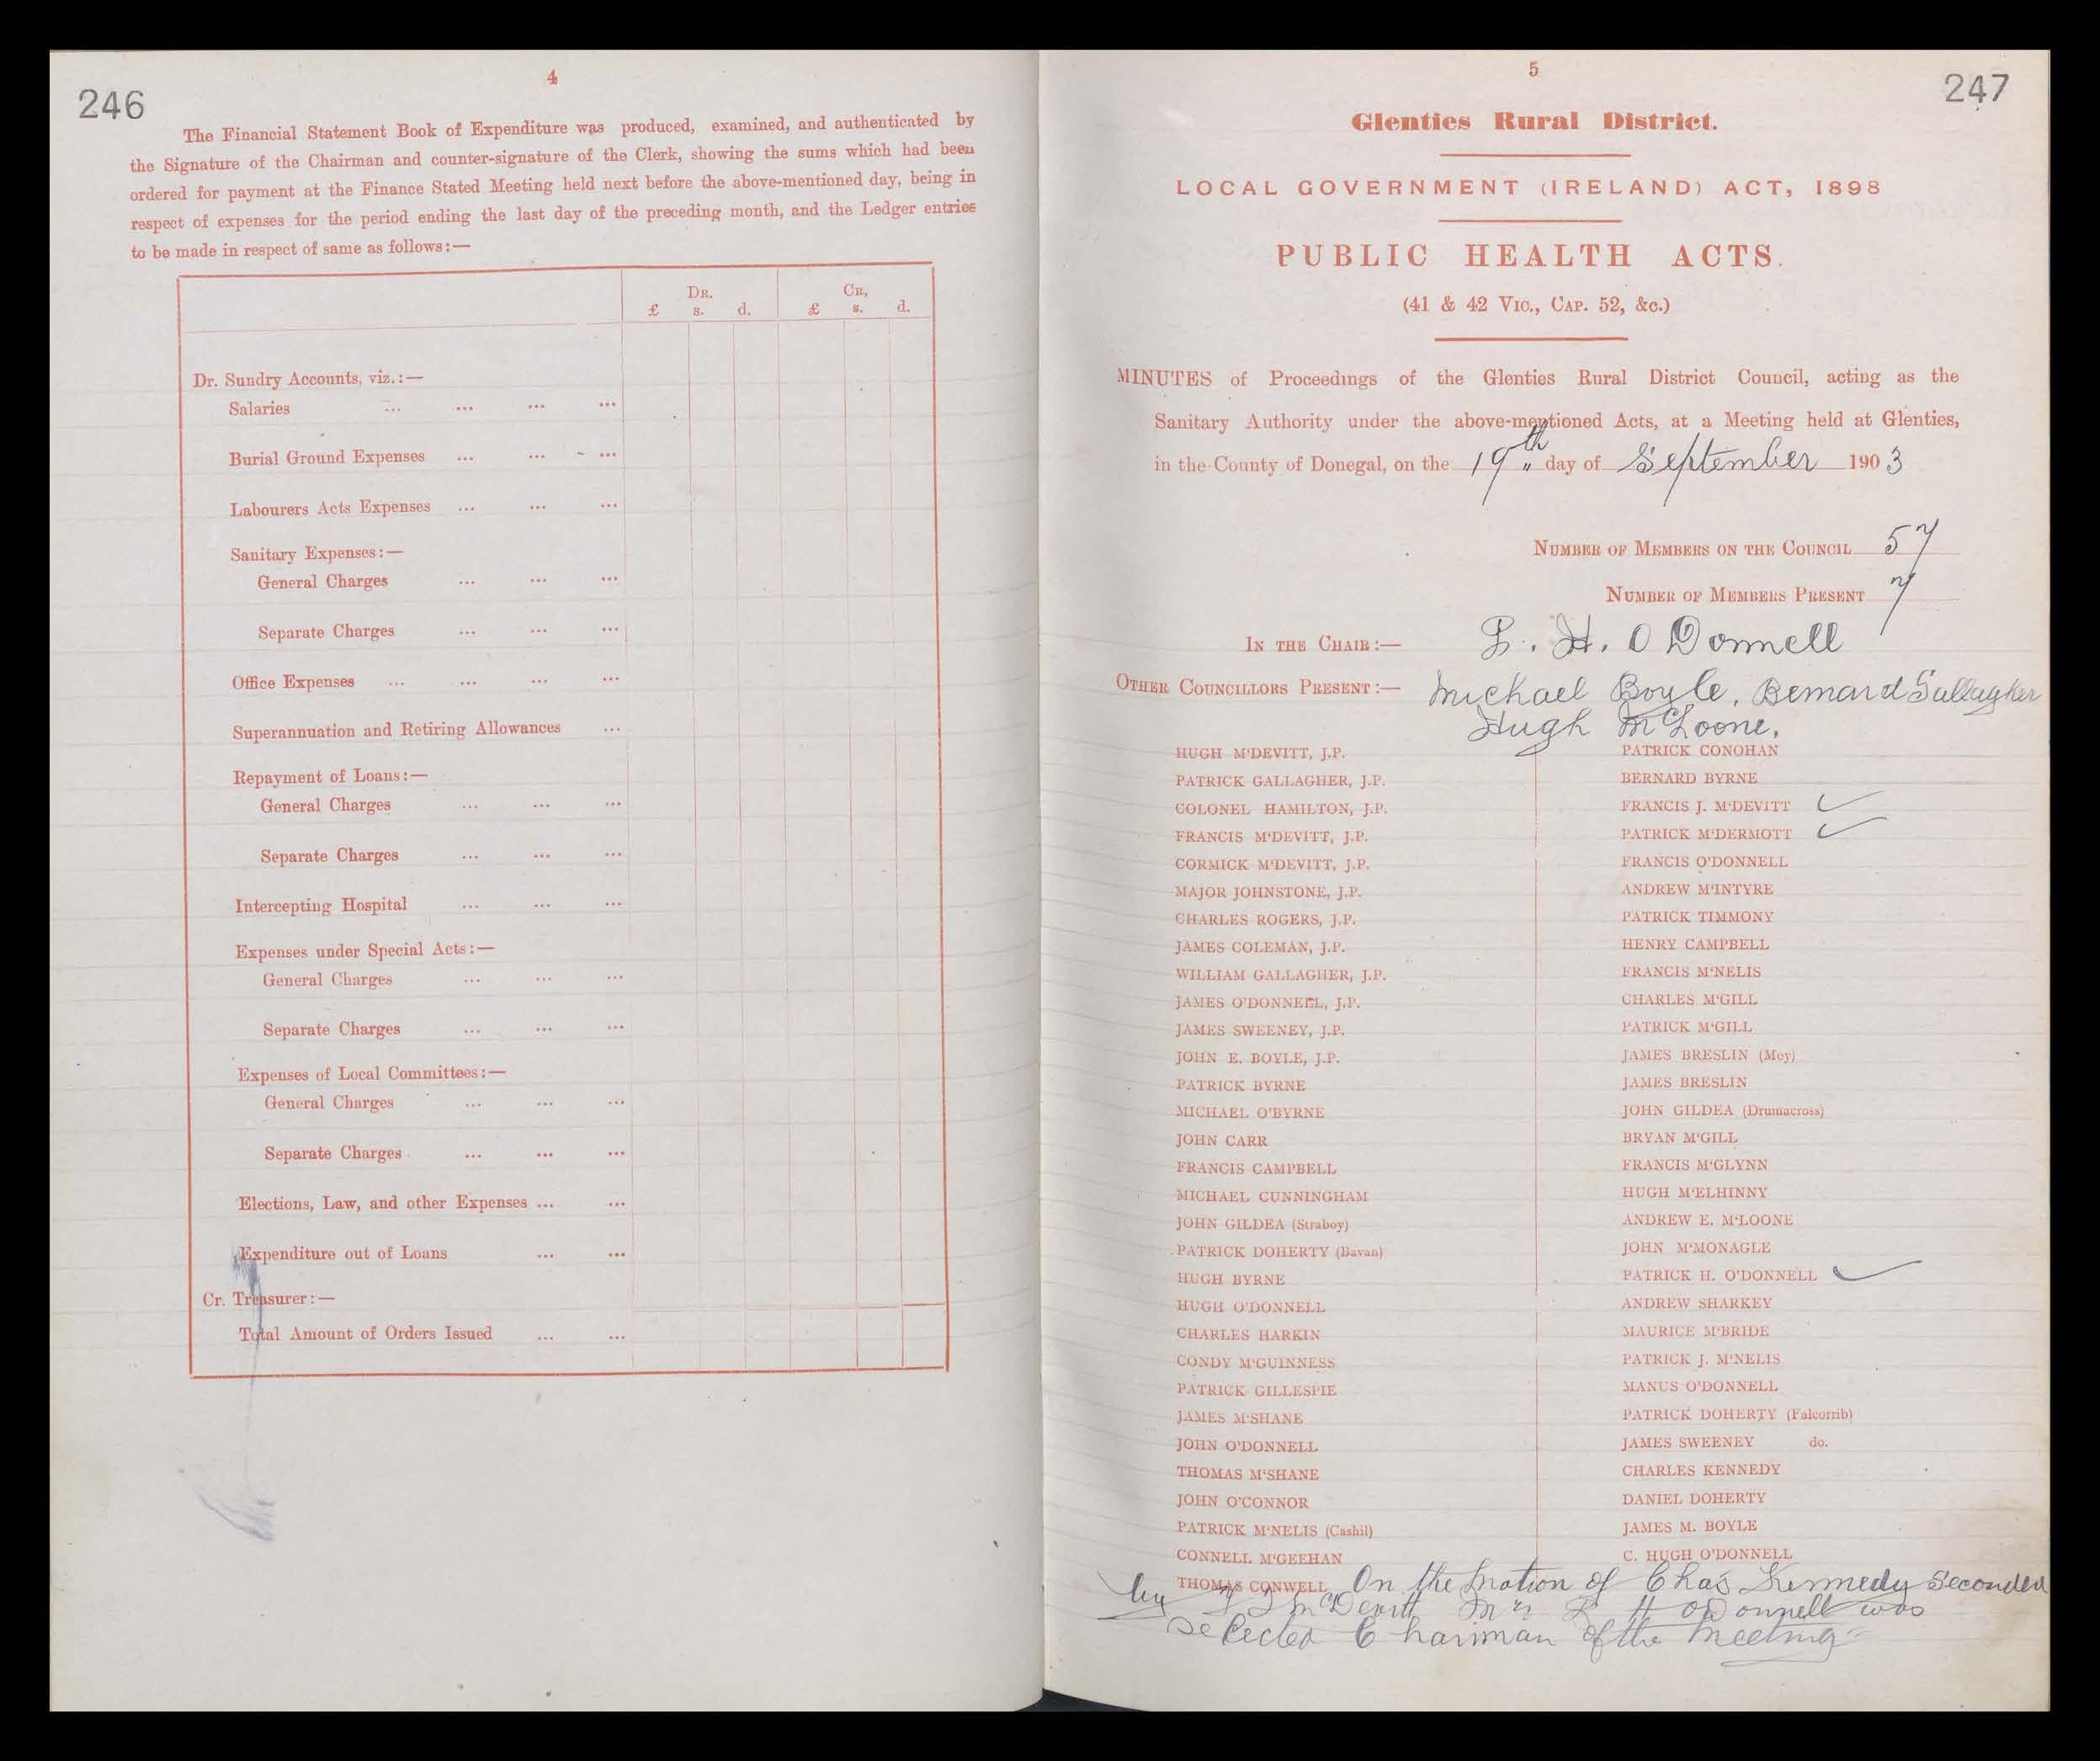 246
4
The Financial Statement Book of Expenditure was produced, examined, and authenticated by
the Signature of the Chairman and counter-signature of the Clerk, showing the sums which had been
ordered for payment at the Finance Stated Meeting held next before the above-mentioned day, being in
respect of expenses for the period ending the last day of the preceding month, and the Ledger entries
to be made in respect of same as follows:—
DR. CR,
£ s. d. £ s. d.
Dr. Sundry Accounts, viz.:—
Salaries ... ... ... ...
Burial Ground Expenses ... ... ...
Labourers Acts Expenses ... ... ...
Sanitary Expenses:—
General Charges ... ... ...
Separate Charges ... ... ...
Office Expenses ... ... ... ...
Superannuation and Retiring Allowances ...
Repayment of Loans:—
General Charges ... ... ...
Separate Charges ... ... ...
Intercepting Hospital ... ... ...
Expenses under Special Acts:—
General Charges ... ... ...
Separate Charges ... ... ...
Expenses of Local Committees:—
General Charges ... ... ...
Separate Charges ... ... ...
Elections, Law, and other Expenses ... ...
Expenditure out of Loans ... ...
Cr. Treasurer:—
Total Amount of Orders Issued ... ...
5
247
Glenties Rural District.
LOCAL GOVERNMENT (IRELAND) ACT, 1898
PUBLIC HEALTH ACTS.
(41 & 42 VIC., CAP. 52, &c.)
MINUTES of Proceedings of the Glenties Rural District Council, acting as the
Sanitary Authority under the above-mentioned Acts, at a Meeting held at Glenties,
in the County of Donegal, on the 19th day of September 1903
NUMBER OF MEMBERS ON THE COUNCIL 57
NUMBER OF MEMBERS PRESENT 7
IN THE CHAIR:— H. O Donnell
OTHER COUNCILLORS PRESENT:— Michael Boyle, Bernard Gallagher
Hugh McLoone.
HUGH M'DEVITT, J.P.
PATRICK GALLAGHER, J.P.
COLONEL HAMILTON, J.P.
FRANCIS M'DEVITT, J.P.
CORMICK M'DEVITT, J.P.
MAJOR JOHNSTONE, J.P.
CHARLES ROGERS, J.P.
JAMES COLEMAN, J.P.
WILLIAM GALLAGHER, J.P.
JAMES O'DONNELL, J.P.
JAMES SWEENEY, J.P.
JOHN E. BOYLE, J.P.
PATRICK BYRNE
MICHAEL O'BYRNE
JOHN CARR
FRANCIS CAMPBELL
MICHAEL CUNNINGHAM
JOHN GILDEA (Straboy)
PATRICK DOHERTY (Bavan)
HUGH BYRNE
HUGH O'DONNELL
CHARLES HARKIN
CONDY M'GUINNESS
PATRICK GILLESPIE
JAMES M'SHANE
JOHN O'DONNELL
THOMAS M'SHANE
JOHN O'CONNOR
PATRICK M'NELIS (Cashil)
CONNELL M'GEEHAN
THOMAS CONWELL
PATRICK CONOHAN
BERNARD BYRNE
FRANCIS J. M'DEVITT ✓
PATRICK M'DERMOTT ✓
FRANCIS O'DONNELL
ANDREW M'INTYRE
PATRICK TIMMONY
HENRY CAMPBELL
FRANCIS M'NELIS
CHARLES M'GILL
PATRICK M'GILL
JAMES BRESLIN (Moy)
JAMES BRESLIN
JOHN GILDEA (Drumacross)
BRYAN M'GILL
FRANCIS M'GLYNN
HUGH M'ELHINNY
ANDREW E. M'LOONE
JOHN M'MONAGLE
PATRICK H. O'DONNELL ✓
ANDREW SHARKEY
MAURICE M'BRIDE
PATRICK J. M'NELIS
MANUS O'DONNELL
PATRICK DOHERTY (Falcorrib)
JAMES SWEENEY do.
CHARLES KENNEDY
DANIEL DOHERTY
JAMES M. BOYLE
C. HUGH O'DONNELL
On the motion of Chas Kennedy Seconded
by McDevitt Mr H O Donnell was
Selected Chairman of the meeting